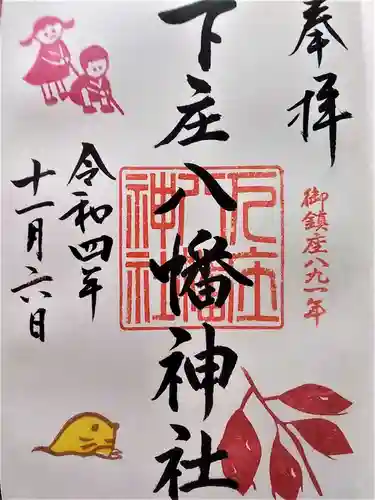 奉拝
御鎮座八九一年
下庄八幡神社
下庄
八幡
神社
令和四年
十一月六日